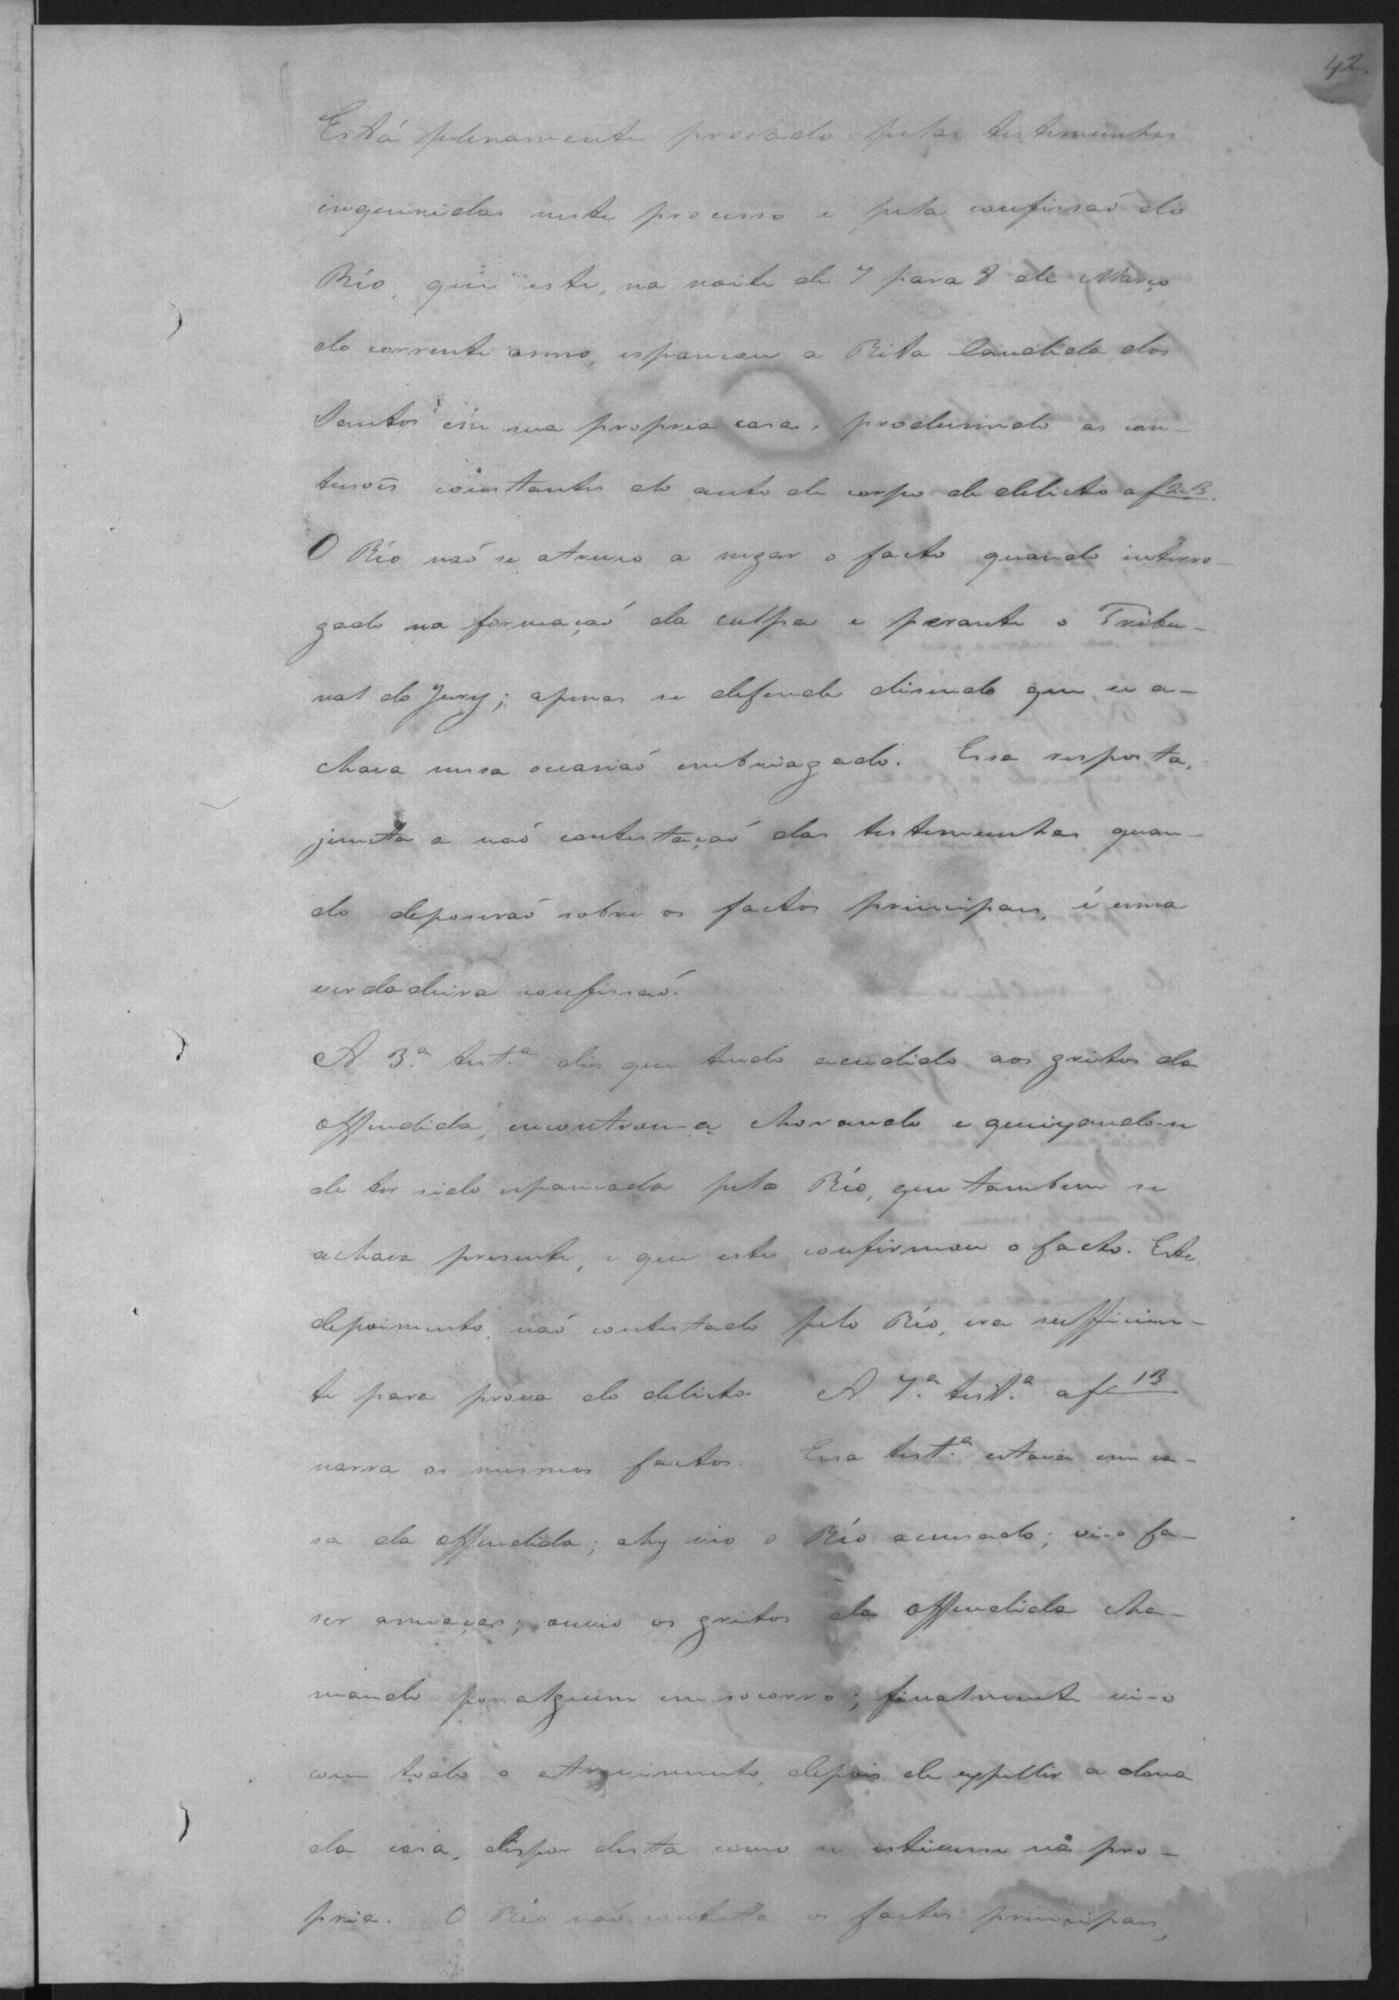 42.
Está plenamente provado pelas testemunhas
inqueridas neste processo e pela confissaõ do
Réo, que este, na noite de 7 para 8 de Março
do corrente anno, espancou a Rita Candida dos
Santos em sua propria casa, produsindo as con-
tusoẽs constantes do auto de corpo de delicto a f
O Réo naõ se atreveo a negar o facto quando interro-
gado na formaçaõ da culpa e perante o Tribu-
nal do Jury; apenas se defende disendo que se a-
chava nessa occasiaõ embriagado. Essa resposta,
junta a naõ contestaçaõ das testemunhas quan-
do deposeraõ sobre os factos principaes, é uma
verdadeira confissaõ.
A 3.ª test.ª dis que tendo acudido aos gritos da
offendida, encontrou-a chorando e queixando-se
de ter sido espancada pelo Réo, que tambem se
achava presente, e que este confirmou o facto. Este
depoimento, naõ contestado pelo Réo, era sufficien-
te para prova do delicto A 7.ª test.ª a f 13
narra os mesmos factos. Essa test.ª estava em ca-
sa da offendida; ahy vio o Réo accusado; vio-o fa-
ser ameaças; ouvio os gritos da offendida cha-
mando por alguem em socorro; finalmente vi-o
com todo o atrevimento, depois de expellir a dona
da casa, dispor desta como se estivesse na pro-
pria. O Réo naõ contesta os factos principaes,